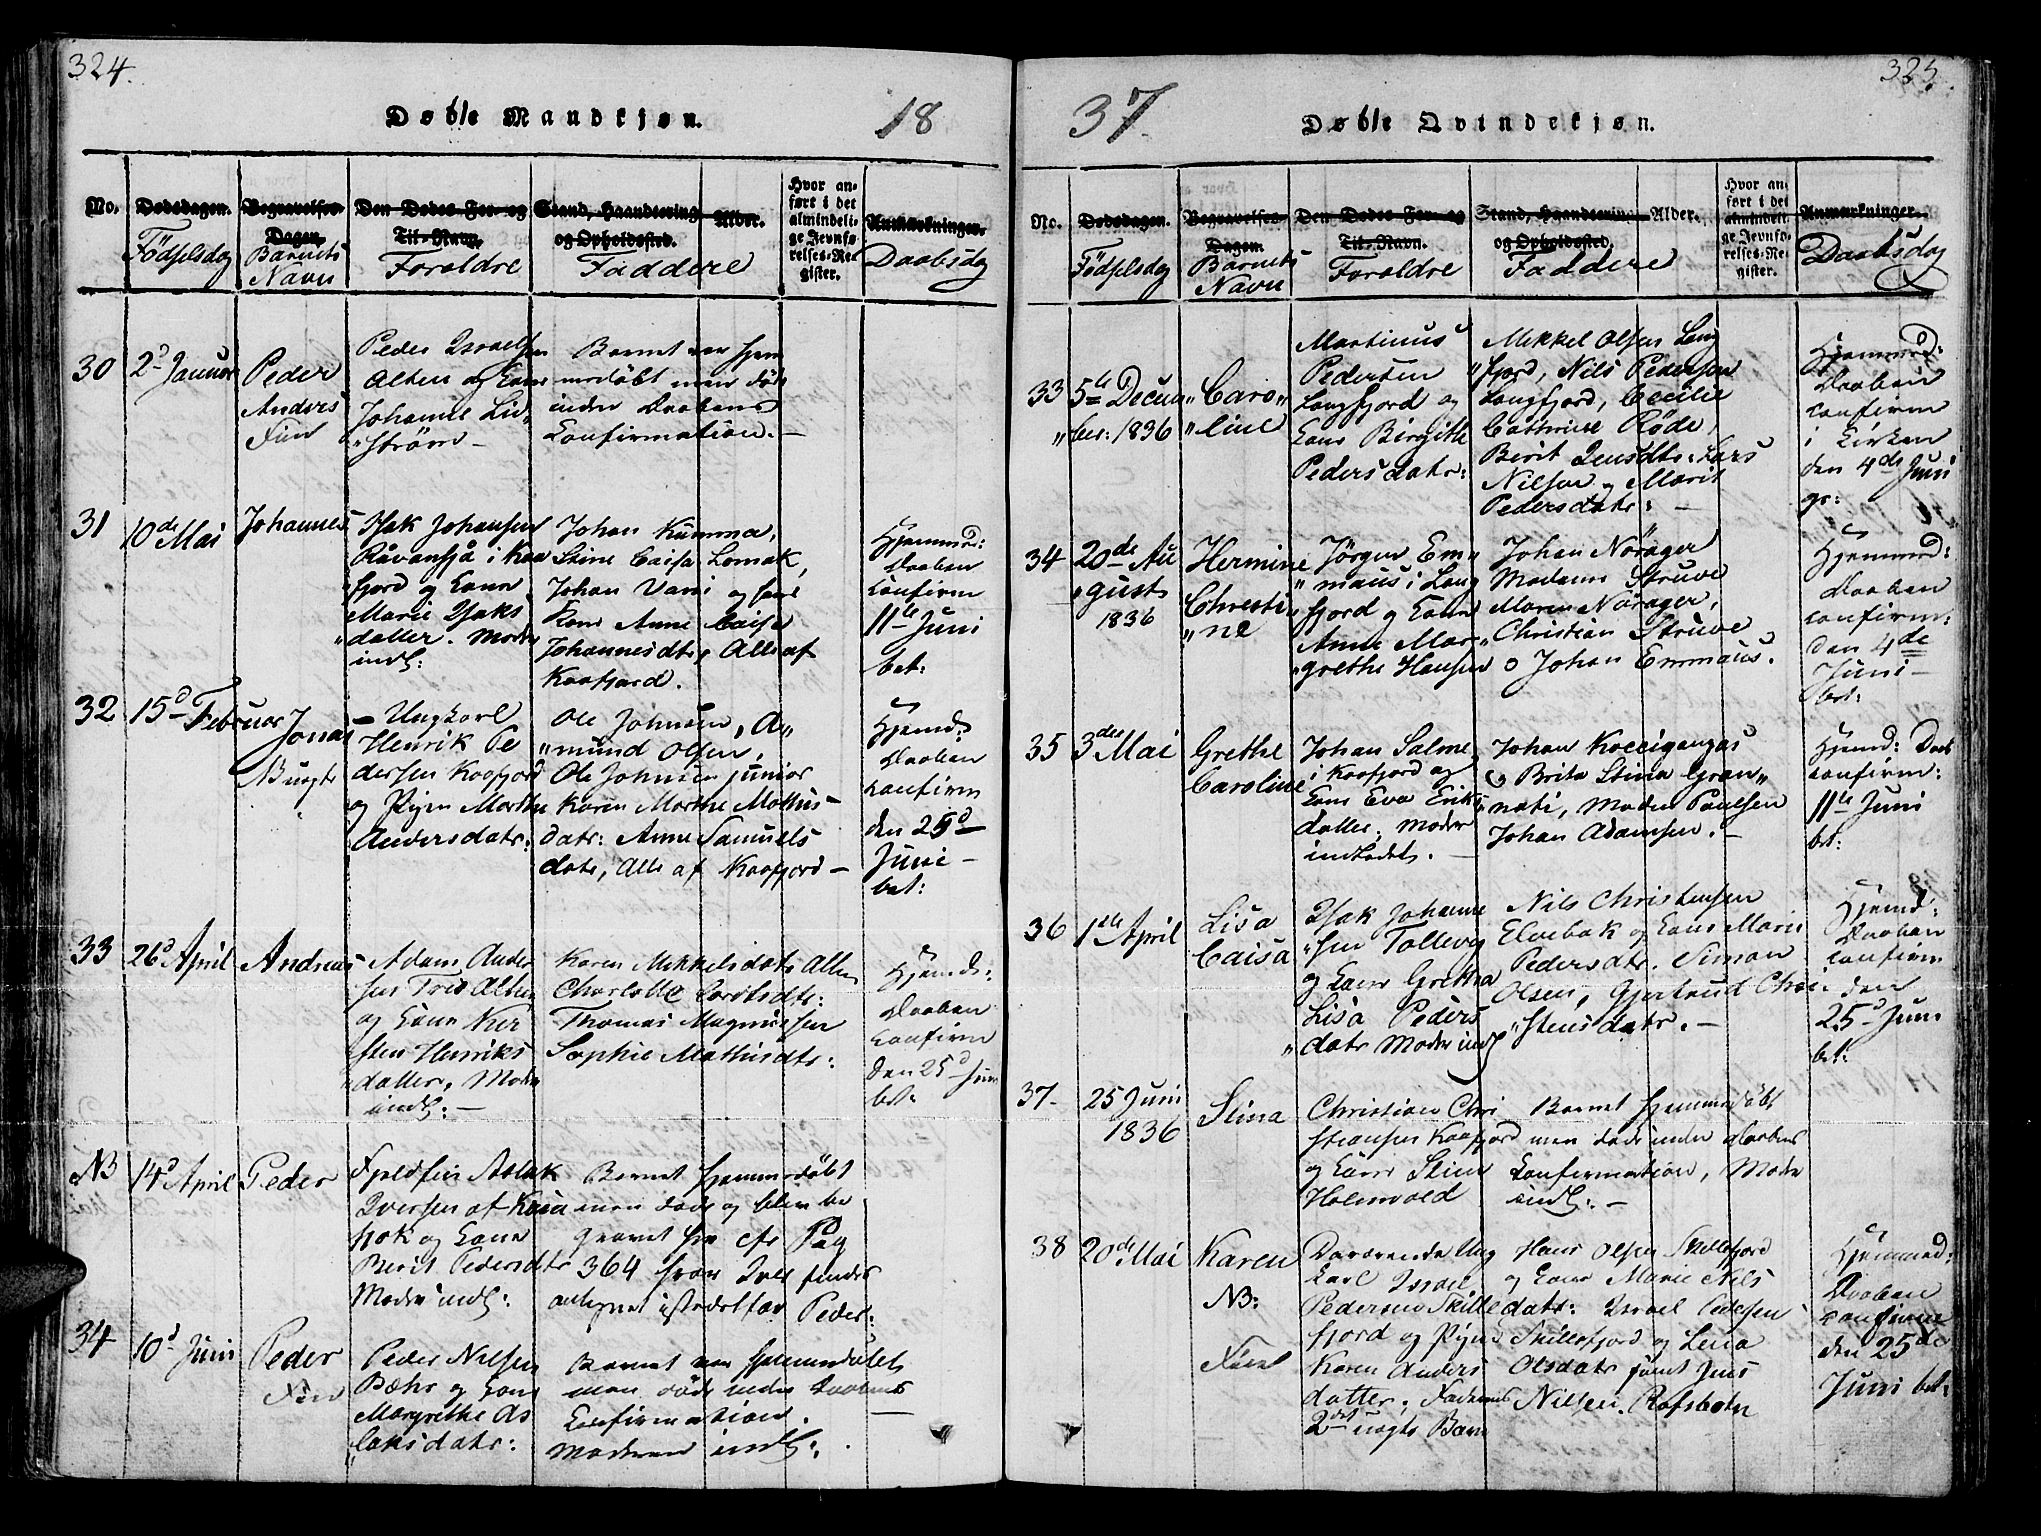 324.
Døble Mandkjøn.
18
No.
Dødsdagen.
Fødselsdag
Begravelses-
Dagen.
Barnets
Navn
Den Dødes For- og
Til-Navn.
Foraldre
Stand, Haandtering
og Opholdssted.
Faddere
Alder.
Hvor an-
ført i det
almindeli-
ge Jevnfø-
relses-Re-
gister.
Anmærkninger.
Daabsdag
30
2d Januar
Peder
Anders
Fin
Peder Israelsen
Alten og Kone
Johanne Lid-
"strøm -
Barnet var hjem
medøbt men døde
inden Daabens
Confirmation. -
31
10de Mai
Johannes
Isak Johansen
i Kaa
"fjord og Kone
Marie Isaks
"datter. Moder
indl:
Johan Kumma,
Stine Caisa Lomak,
Johan Vari og hans
Kone Anne Caisa
Johannesdtr, Alle af
Kaafjord.
Hjemmed:
Daaben
confirm
11te Juni
bet:
32
15d Februar
Jonas
N B uægte
- Ungkarl
Henrik Pe
dersen Kaafjord
og Pigen Marthe
Andersdatr:
Ole Johnsen, A"
"mund Olsen,
Ole Johnsen junior
Karen Marthe Mathis-
datr: Anne Samuels
datr, Alle af Kaafjord -
Hjemd:
Daaben
confirm
den 25d
Juni -
bet:
33
26d April
Andreas
Adam Ander
sen Alten
og Kone Kir
sten Henriks
"datter, Moder
indl: -
Karen Mikkelsdatr Alten
Charlotte Lardtsdtr:
Thomas Magnussen
Sophie Mathisdtr:
Hjemd:
Daaben
confirm
den 25d Juni
bet:
NB
14d April
Peder
Fjeldfin Aslak
Iversen af Kau
tok og Kone
Berit Pedersdtr
Moder indl:
Barnet hjemmedøbt
men døde og blev be
gravet her cfr Pag
364 hvor Iver findes
antegnet istedetfor Peder:
34
10d Juni
Peder
Fin
Peder Nilsen
Bæhr og Kone
Margrethe As
"laksdatr:
Barnet var hjemmedøbt
men døde inden Daabens
Confirmation.
Moderen indl:
325.
37.
Døble Qvindekjøn.
No.
Dødsdagen.
Fødselsdag
Begravelses-
Dagen.
Barnets
Navn
Den Dødes For- og
Til-Navn.
Foraldre
Stand, Haandtering
og Opholdssted.
Faddere
Alder.
Hvor an-
ført i det
almindeli-
ge Jevnfø-
relses-Re-
gister.
Anmærkninger.
Daabsdag
33
5te Decem
"ber: 1836
"Caro"
"line
Martinus
Pedersen
Langfjord og
Kone Birgithe
Pedersdatr:
Mikkel Olsen Lang
"fjord, Nils Pedersen
Langfjord, Cecilie
Cathrine Røde,
Berit Jensdtr: Lars
Nilsen og Marit
Pedersdatr: -
Hjemmed:
Daaben
confirm
i Kirken
den 4de Juni
34
20de Au
"gust
1836
Hermine
Christi
"ne
Jørgen Em"
"maus i Lang
"fjord og Kone
Anne Mar"
"grethe Hansen
Johan Norager
Madame Struve
Maren Norager,
Christian Struve
o Johan Emmaus.
Hjemmed:
Daaben
confirm:
den 4de
Juni -
bet:
35
3die Mai
Grethe
Caroline
Johan Salme
i Kaafjord og
Kone Eva Erik"
datter. Moder
indladet. -
Johan Koccigangas
og Brita Stina Gran"
nati, Madme Paulsen
Johan Adamsen. -
Hjemd: Daab
confirm:
11te Juni
bet:
36
1ste April
Lisa
Caisa
Isak Johanne
"sen Tollevig
og Kone Gretha
Lisa Peders
"datr Moder indl
Nils Christensen
Elvebak og Kone Marie
Pedersdtr. Simon
Olsen, Gjertrud Chri
"stensdatr. -
Hjemd:
Daaben
confirm
den
25d Juni
bet:
37-
25 Juni
1836
Stina
Christian Chri
stiansen Kaafjord
og Kone Stine
Holmvold
Barnet hjemmedøbt
men døde inden Daabens
Confirmation, Moder
indl: -
38
20de Mai
Karen
NB:
Finn
Daværende Ung
karl Israel
Pedersen Skille
fjord og Pigen
Karen Anders
datter. Faderens
2det uægte Barn
Hans Olsen Skillefjord
og Kone Marie Nils
datr: Israel Pedersen
Skillefjord og Lena
Olsdatr samt Jens
Nilsen. Rafsbotn
Hjemmed:
Daaben
confirm
den 25de
Juni bet: